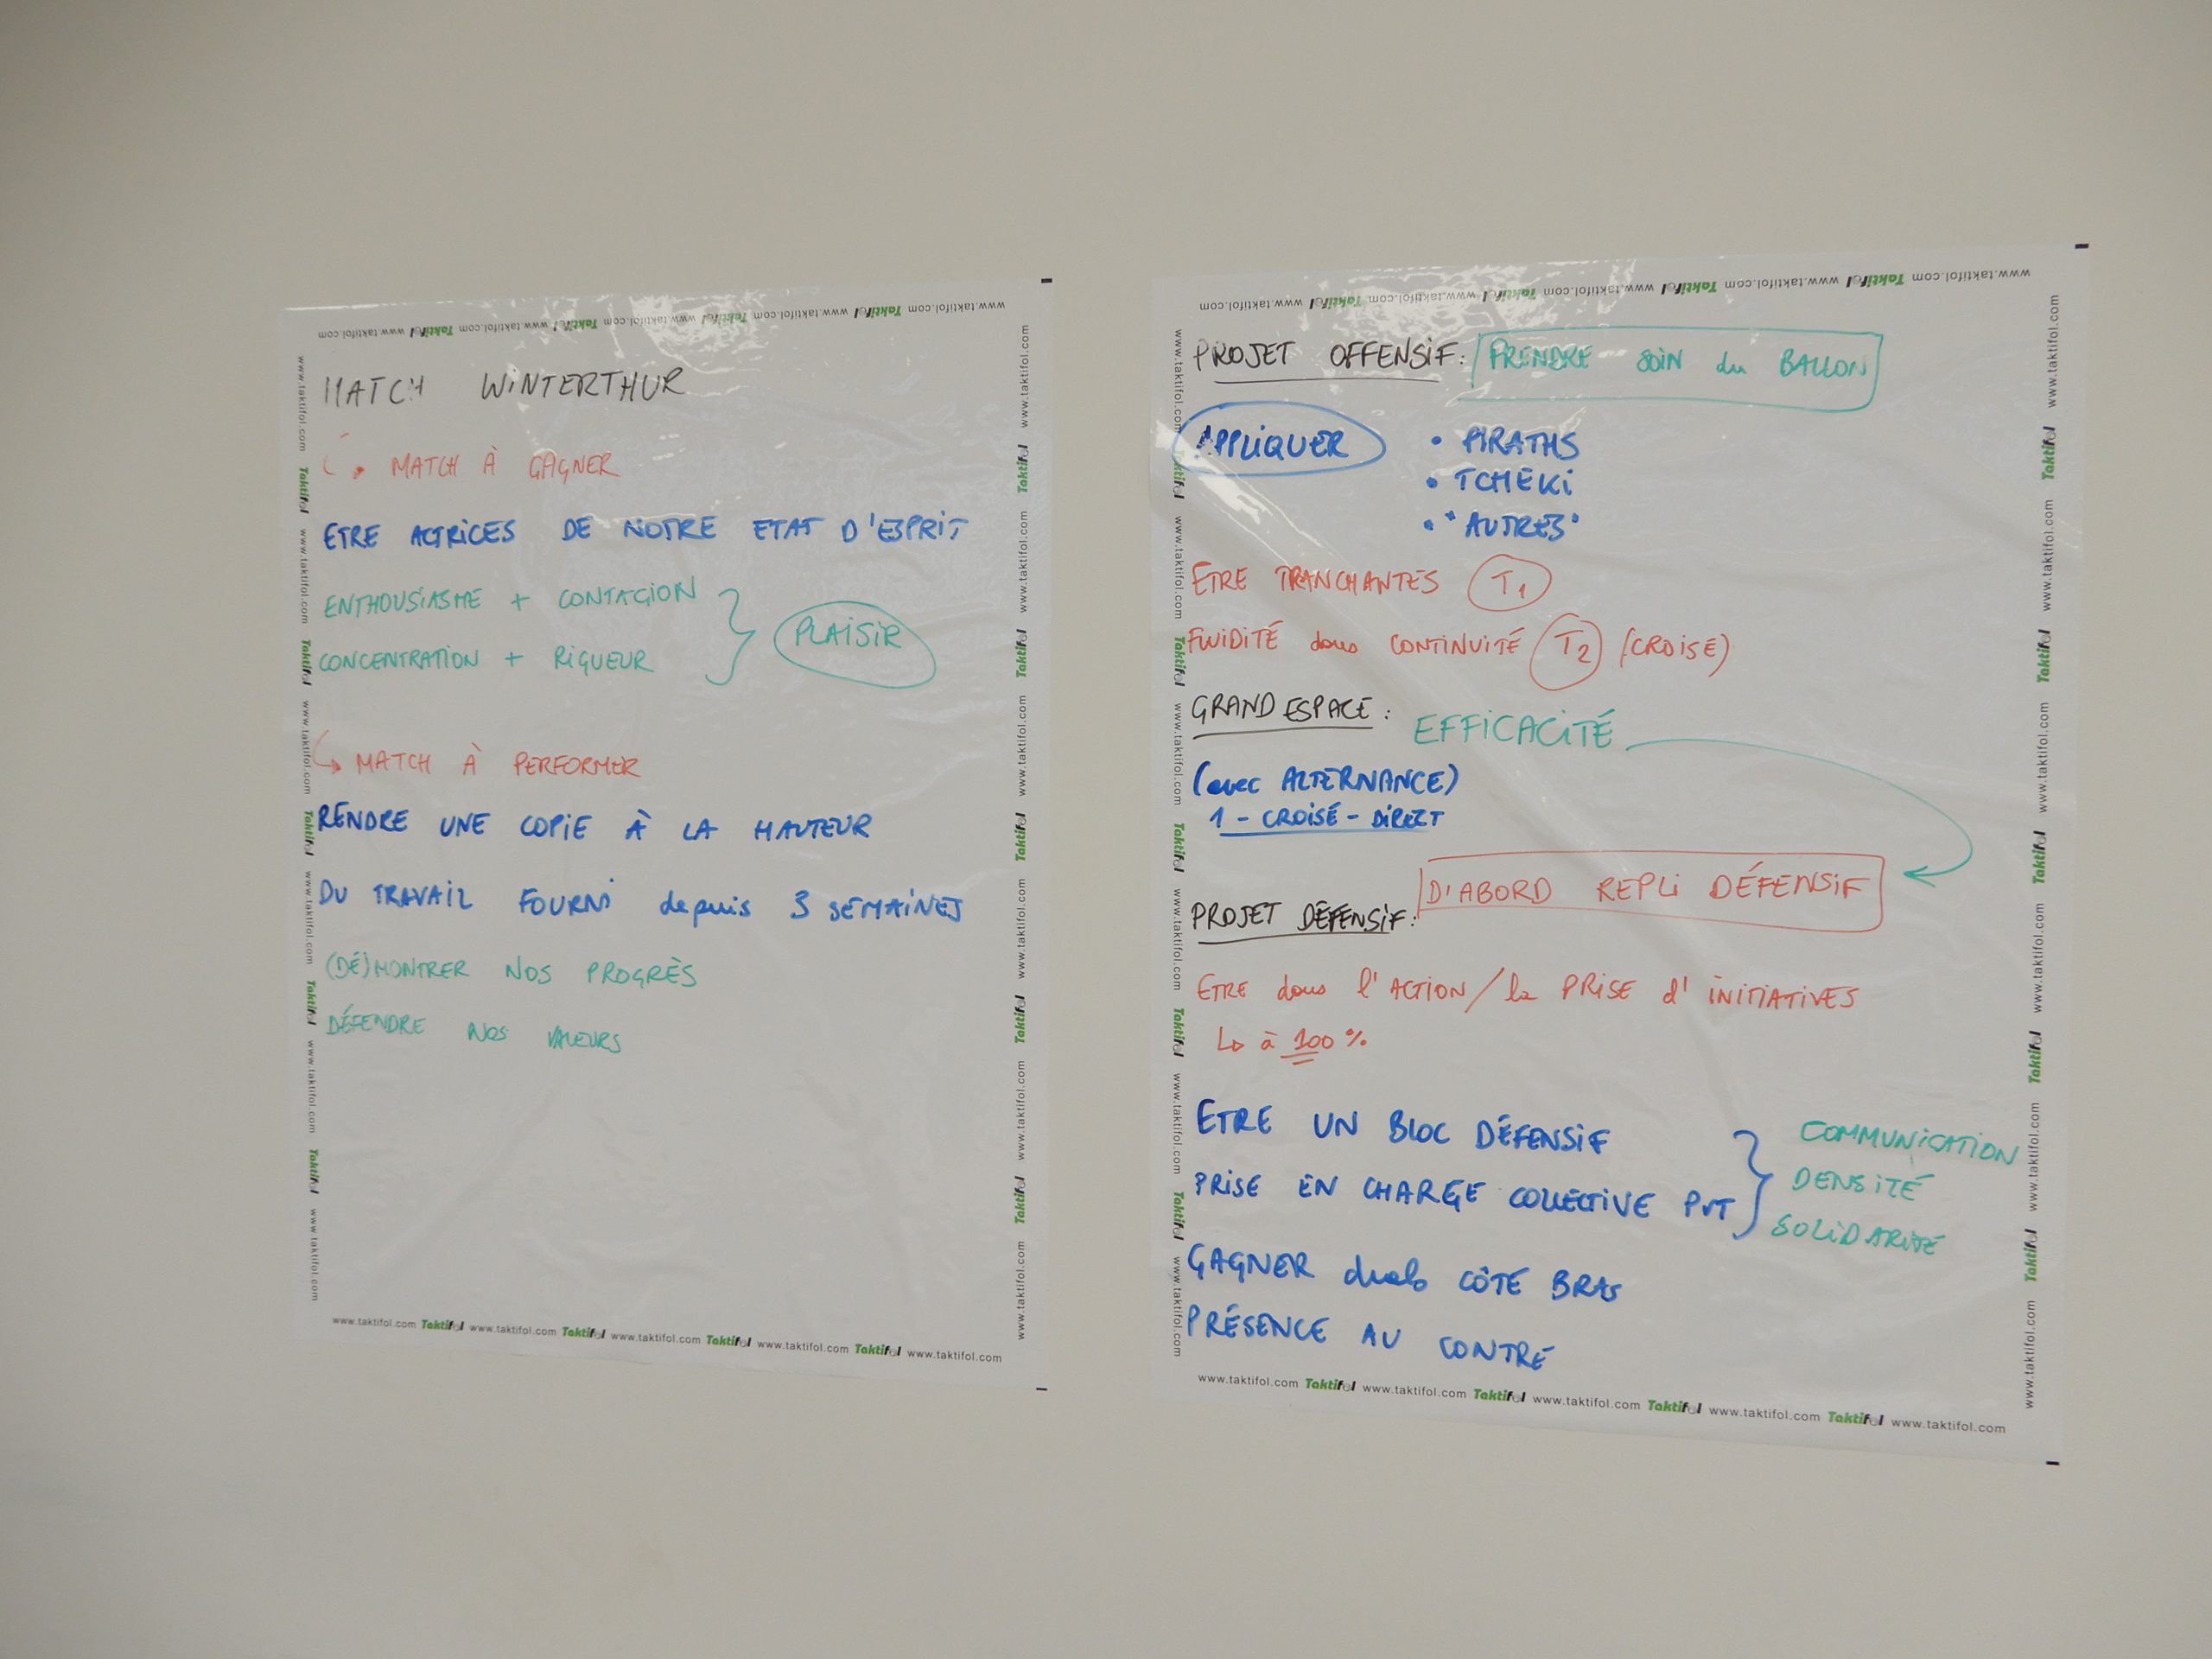 www.taktifol.com Taktifol www.taktifol.com Taktifol www.taktifol.com Taktifol www.taktifol.com Taktifol www.taktifol.com
MATCH WINTERTHUR
• MATCH À GAGNER
ETRE ACTRICES DE NOTRE ETAT D'ESPRIT
ENTHOUSIASME + CONTAGION
CONCENTRATION + RIGUEUR
PLAISIR
↳ MATCH À PERFORMER
RENDRE UNE COPIE À LA HAUTEUR
DU TRAVAIL FOURNI depuis 3 SEMAINES
(DÉ)MONTRER NOS PROGRÈS
DÉFENDRE NOS VALEURS
www.taktifol.com Taktifol www.taktifol.com Taktifol www.taktifol.com Taktifol www.taktifol.com Taktifol www.taktifol.com
www.taktifol.com Taktifol www.taktifol.com Taktifol www.taktifol.com Taktifol www.taktifol.com Taktifol www.taktifol.com
PROJET OFFENSIF: PRENDRE SOIN du BALLON
APPLIQUER
• PIRATHS
• TCHEKI
• "AUTRES"
ETRE TRANCHANTES T1
FLUIDITÉ dans CONTINUITÉ T2 (CROISÉ)
GRAND ESPACE: EFFICACITÉ
(avec ALTERNANCE)
1 - CROISÉ - DIRECT
D'ABORD REPLI DÉFENSIF
PROJET DÉFENSIF:
ETRE dans l'ACTION / la PRISE d'INITIATIVES
↳ à 100 %
ETRE UN BLOC DÉFENSIF
PRISE EN CHARGE COLLECTIVE PVT
COMMUNICATION
DENSITÉ
SOLIDARITÉ
GAGNER duels CÔTÉ BRAS
PRÉSENCE AU CONTRE
www.taktifol.com Taktifol www.taktifol.com Taktifol www.taktifol.com Taktifol www.taktifol.com Taktifol www.taktifol.com